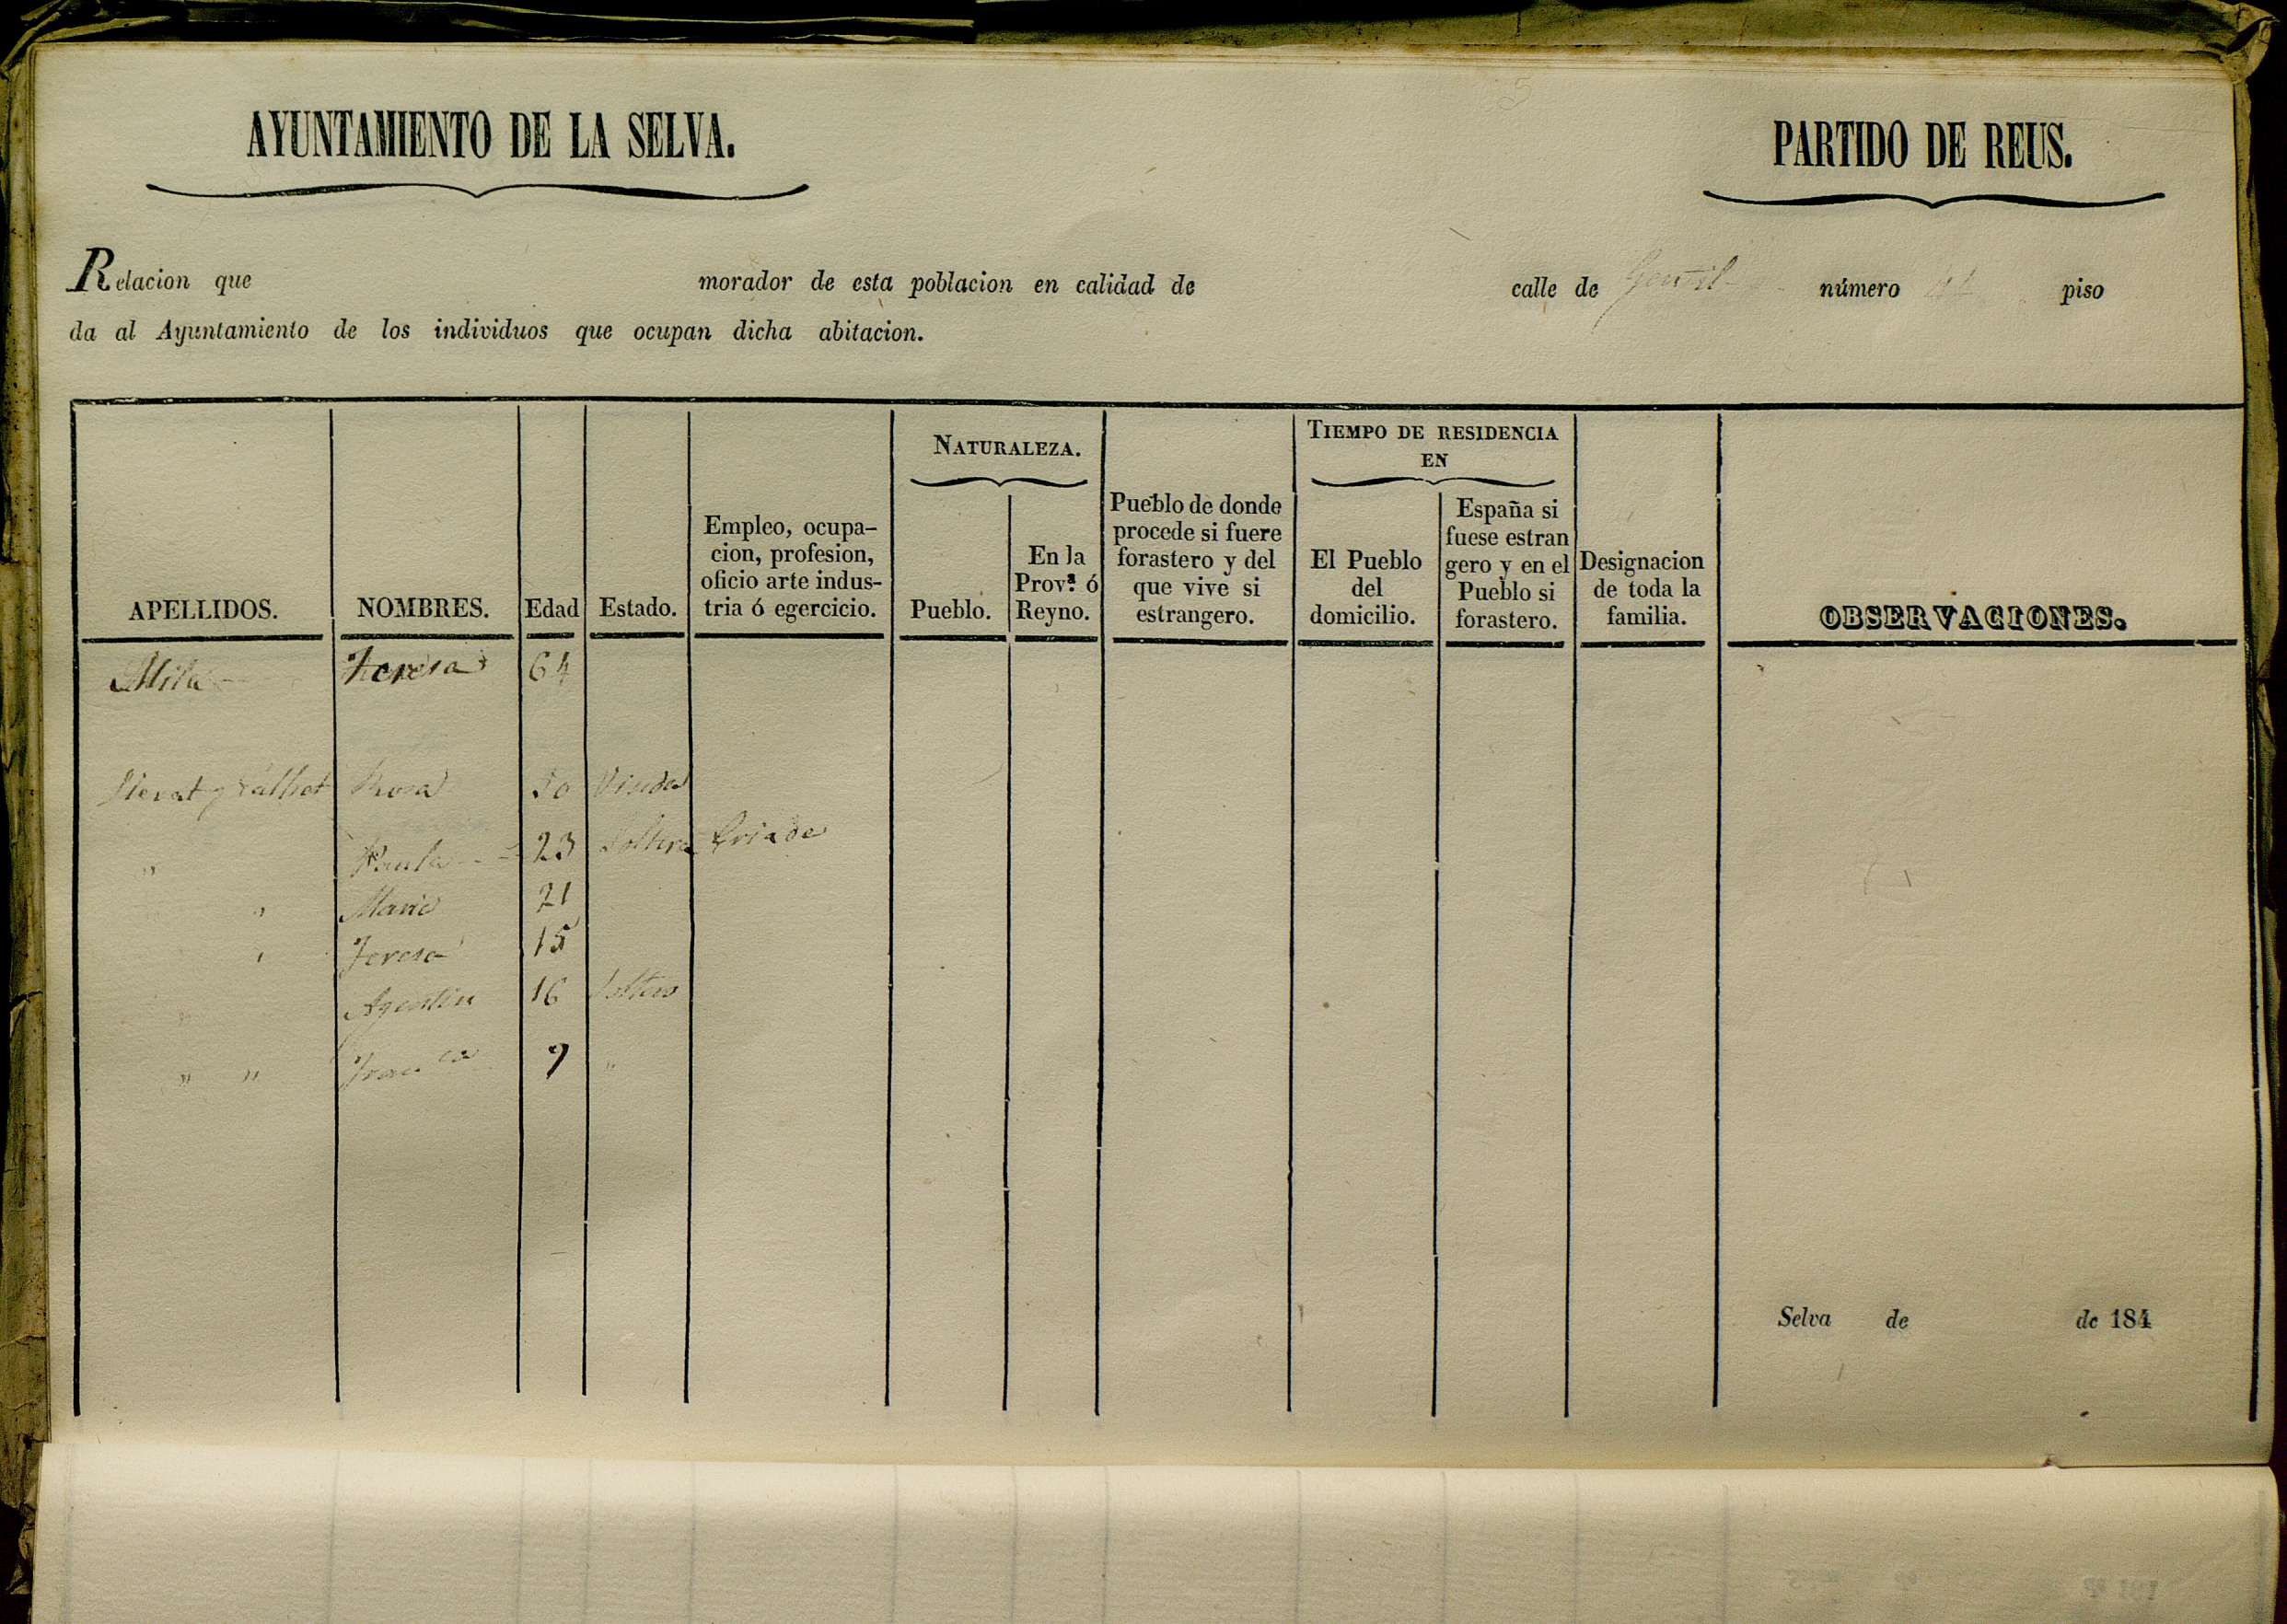 AYUNTAMIENTO DE LA SELVA.
PARTIDO DE REUS.
Relacion que morador de esta poblacion en calidad de calle de número piso
da al Ayuntamiento de los individuos que ocupan dicha abitacion.
APELLIDOS.
NOMBRES.
Edad
Estado.
Empleo, ocupa-
cion, profesion,
oficio arte indus-
tria ó egercicio.
NATURALEZA.
Pueblo.
En la
Prov.ª ó
Reyno.
Pueblo de donde
procede si fuere
forastero y del
que vive si
estrangero.
TIEMPO DE RESIDENCIA
EN
El Pueblo
del
domicilio.
España si
fuese estran
gero y en el
Pueblo si
forastero.
Designacion
de toda la
familia.
OBSERVACIONES.
Teresa 64
y Rosa 50 Viuda
" Paula 23 Soltera Criada
" Maria 21
" Teresa 15
" Agustin 16 Soltero
" " Fran.ca 9 "
Selva de de 184